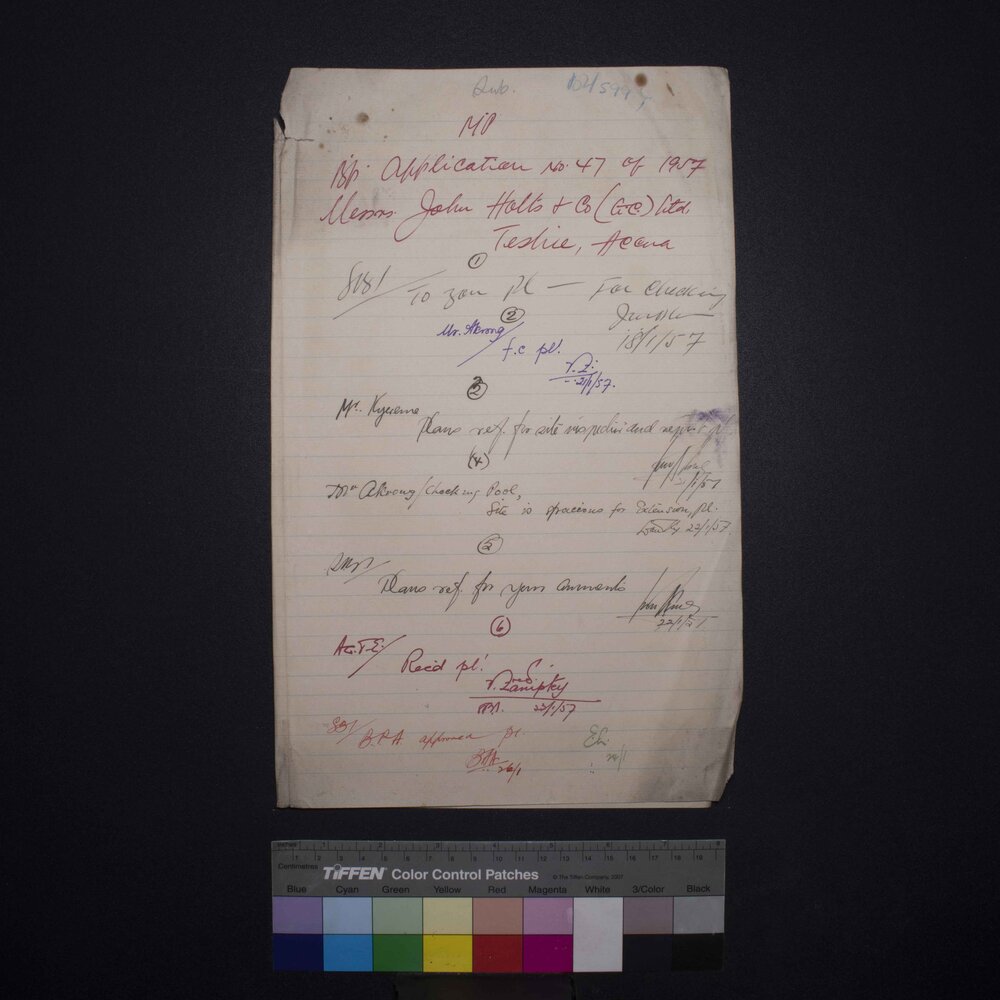 MP
B.P. Application No. 47 of 1957
Messrs. John Holts & Co (G.C) Ltd.
Teshie, Accra
1
To you pl — For Checking
18/1/57
2
Mr. Akrong/
f.c pl!
21/1/57.
3
Mr. Kyereme
Plans ref. for site inspection and report pl.
/1/57
(4)
Mr Akrong/Checking Pool,
Site is spacious for Extension, pl.
22/1/57.
5
Plans ref. for your comments
22/1/57
6
Ag. T.E./
Recd pl!
Lamptey
22/1/57
B.P.A. approved pl.
26/1
24/1
Inches 1 2 3 4 5 6 7 8
Centimetres 1 2 3 4 5 6 7 8 9 10 11 12 13 14 15 16 17 18 19
TIFFEN Color Control Patches © The Tiffen Company, 2007
Blue Cyan Green Yellow Red Magenta White 3/Color Black